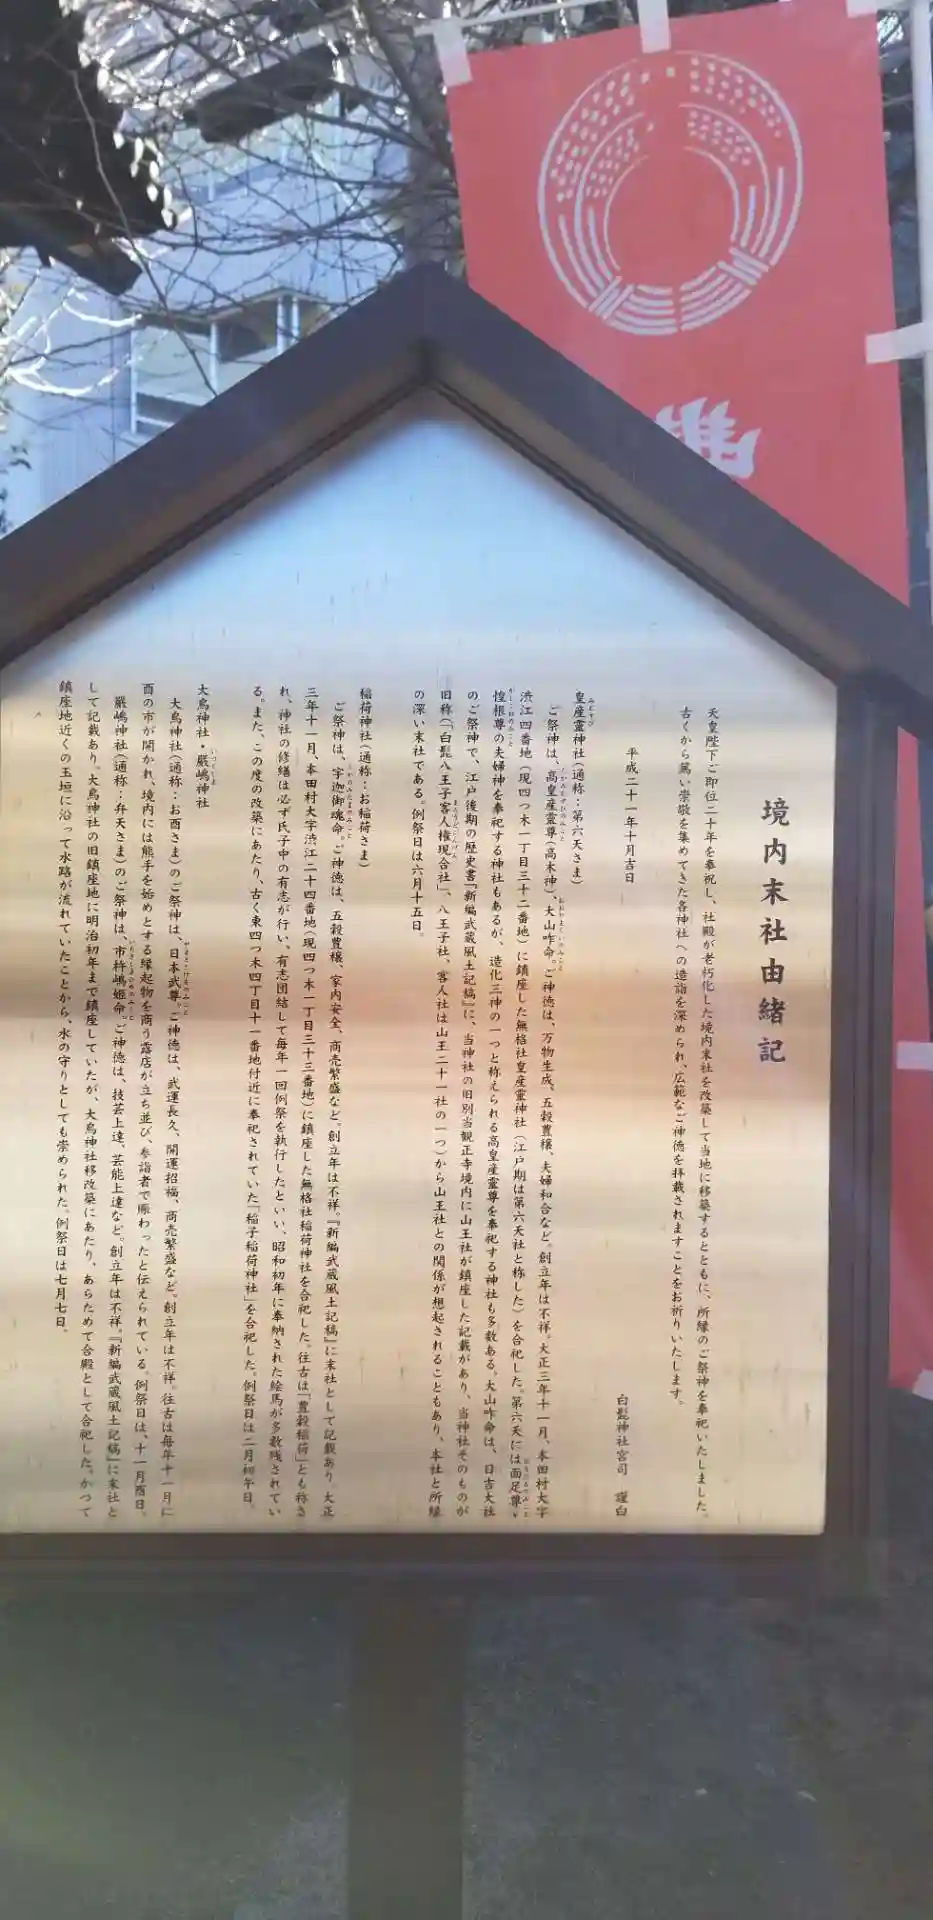 境内末社由緒記
天皇陛下ご即位二十年を奉祝し、社殿が老朽化した境内末社を改築して当地に移築するとともに、所縁のご祭神を奉祀いたしました。
古くから篤い崇敬を集めてきた各神社への造詣を深められ、広範なご神徳を拝戴されますことをお祈りいたします。
平成二十一年十月吉日
白髭神社宮司 謹白
皇産霊神社(通称:第六天さま)
ご祭神は、高皇産霊尊(高木神)、大山咋命。ご神徳は、万物生成、五穀豊穣、夫婦和合など。創立年は不祥。大正三年十一月、本田村大字
渋江四番地(現四つ木一丁目三十二番地)に鎮座した無格社皇産霊神社(江戸期は第六天社と称した)を合祀した。第六天には面足尊、
惶根尊の夫婦神を奉祀する神社もあるが、造化三神の一つと称えられる高皇産霊尊を奉祀する神社も多数ある。大山咋命は、日吉大社
のご祭神で、江戸後期の歴史書『新編武蔵風土記稿』に、当神社の旧別当観正寺境内に山王社が鎮座した記載があり、当神社そのものが
旧称(「白髭八王子客人権現合社」、八王子社、客人社は山王二十一社の一つ)から山王社との関係が想起されることもあり、本社と所縁
の深い末社である。例祭日は六月十五日。
稲荷神社(通称:お稲荷さま)
ご祭神は、宇迦御魂命。ご神徳は、五穀豊穣、家内安全、商売繁盛など。創立年は不祥。『新編武蔵風土記稿』に末社として記載あり。大正
三年十一月、本田村大字渋江二十四番地(現四つ木一丁目三十三番地)に鎮座した無格社稲荷神社を合祀した。往古は「豊穀稲荷」とも称さ
れ、神社の修繕は必ず氏子中の有志が行い、有志団結して毎年一回例祭を執行したといい、昭和初年に奉納された絵馬が多数残されてい
る。また、この度の改築にあたり、古く東四つ木四丁目十一番地付近に奉祀されていた「稲子稲荷神社」を合祀した。例祭日は二月初午日。
大鳥神社・厳嶋神社
大鳥神社(通称:お酉さま)のご祭神は、日本武尊。ご神徳は、武運長久、開運招福、商売繁盛など。創立年は不祥。往古は毎年十一月に
酉の市が開かれ、境内には熊手を始めとする縁起物を商う露店が立ち並び、参詣者で賑わったと伝えられている。例祭日は、十一月酉日。
厳嶋神社(通称:弁天さま)のご祭神は、市杵嶋姫命。ご神徳は、技芸上達、芸能上達など。創立年は不祥。『新編武蔵風土記稿』に末社と
して記載あり。大鳥神社の旧鎮座地に明治初年まで鎮座していたが、大鳥神社移改築にあたり、あらためて合殿として合祀した。かつて
鎮座地近くの玉垣に沿って水路が流れていたことから、水の守りとしても崇められた。例祭日は七月七日。